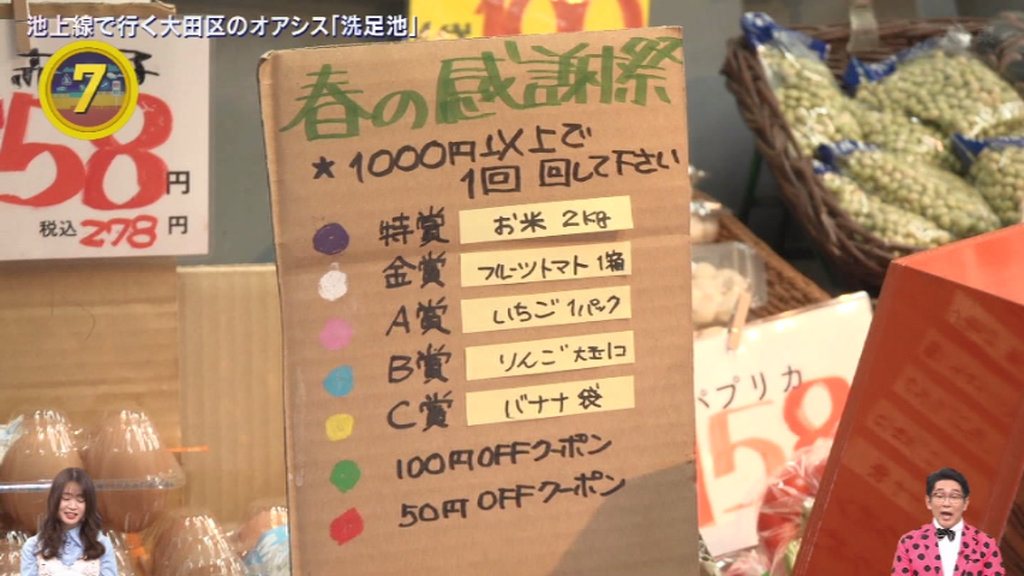 池上線で行く大田区のオアシス「洗足池」
7
58円
税込278円
春の感謝祭
★1000円以上で
1回 回して下さい
特賞 お米 2kg
金賞 フルーツトマト 1箱
A賞 いちご 1パック
B賞 りんご 大玉1コ
C賞 バナナ 袋
100円OFFクーポン
50円OFFクーポン
パプリカ
58